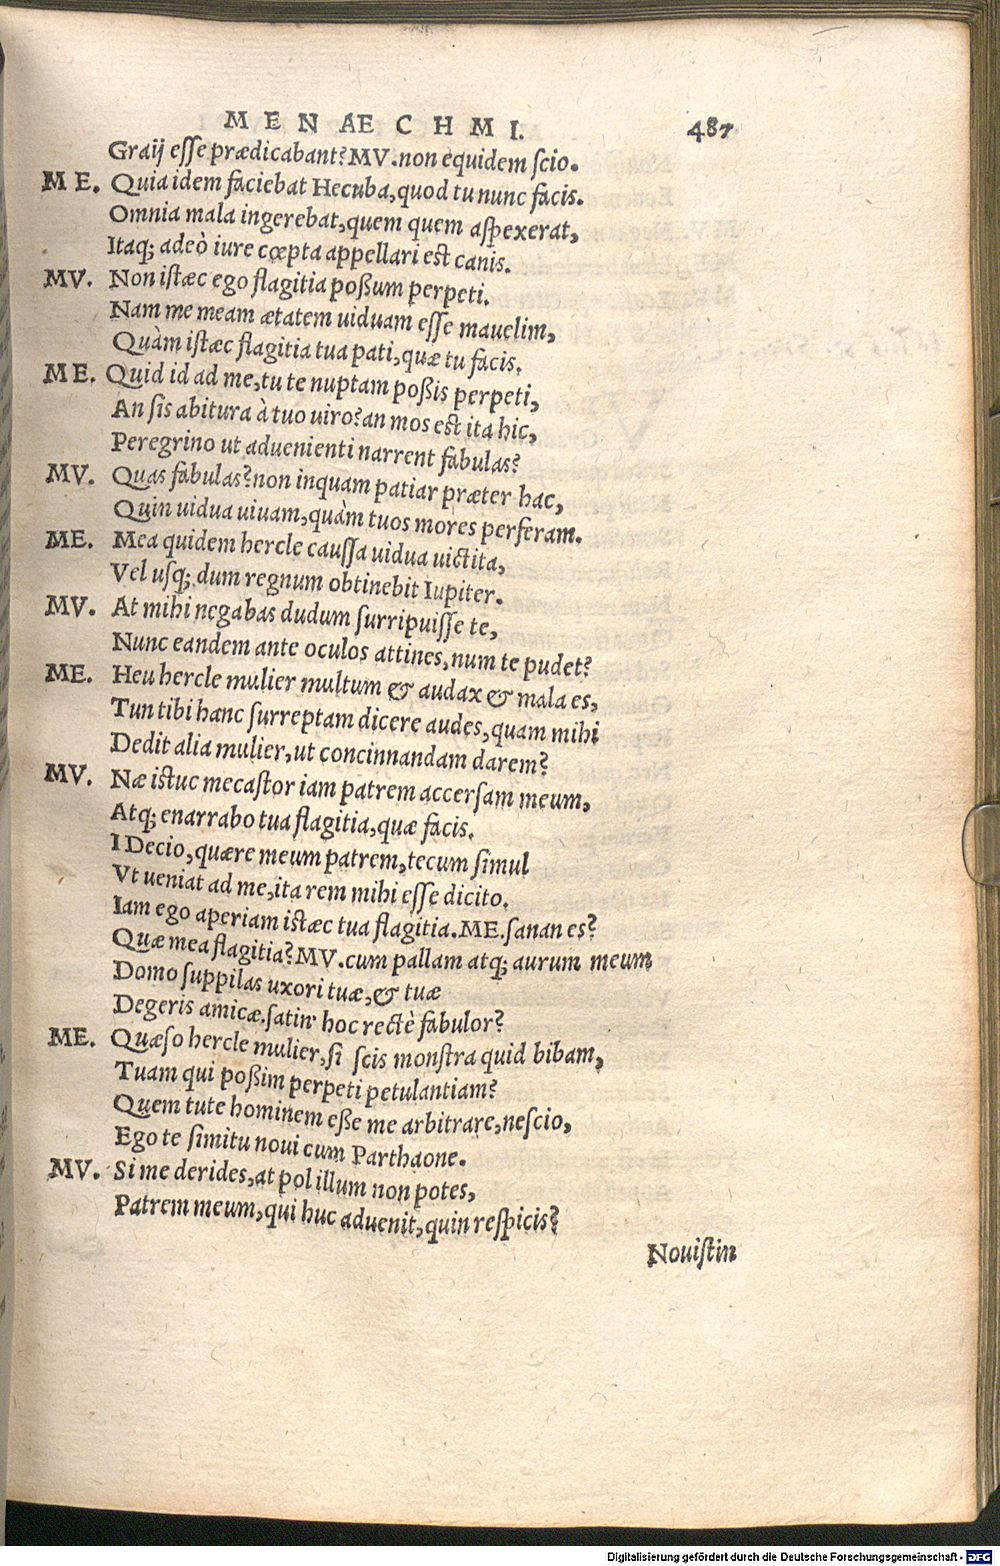 MENAECHMI. 487
Graij esse prædicabant? MV. non equidem scio.
ME. Quia idem faciebat Hecuba, quod tu nunc facis.
Omnia mala ingerebat, quem quem aspexerat,
Itaq; adeò iure cœpta appellari est canis.
MV. Non istæc ego flagitia poßum perpeti.
Nam me meam ætatem uiduam esse mauelim,
Quàm istæc flagitia tua pati, quæ tu facis.
ME. Quid id ad me, tu te nuptam poßis perpeti,
An sis abitura à tuo uiro? an mos est ita hic,
Peregrino ut aduenienti narrent fabulas?
MV. Quas fabulas? non inquam patiar præter hac,
Quin uidua uiuam, quàm tuos mores perferam.
ME. Mea quidem hercle caussa uidua uictita,
Vel usq; dum regnum obtinebit Iupiter.
MV. At mihi negabas dudum surripuisse te,
Nunc eandem ante oculos attines, num te pudet?
ME. Heu hercle mulier multum & audax & mala es,
Tun tibi hanc surreptam dicere audes, quam mihi
Dedit alia mulier, ut concinnandam darem?
MV. Næ istuc mecastor iam patrem accersam meum,
Atq; enarrabo tua flagitia, quæ facis.
I Decio, quære meum patrem, tecum simul
Vt ueniat ad me, ita rem mihi esse dicito.
Iam ego aperiam istæc tua flagitia. ME. sanan es?
Quæ mea flagitia? MV. cum pallam atq; aurum meum
Domo suppilas uxori tuæ, & tuæ
Degeris amicæ. satin' hoc rectè fabulor?
ME. Quæso hercle mulier, si scis monstra quid bibam,
Tuam qui poßim perpeti petulantiam?
Quem tute hominem eße me arbitrare, nescio,
Ego te simitu noui cum Parthaone.
MV. Si me derides, at pol illum non potes,
Patrem meum, qui huc aduenit, quin respicis?
Nouistin
Digitalisierung gefördert durch die Deutsche Forschungsgemeinschaft - DFG